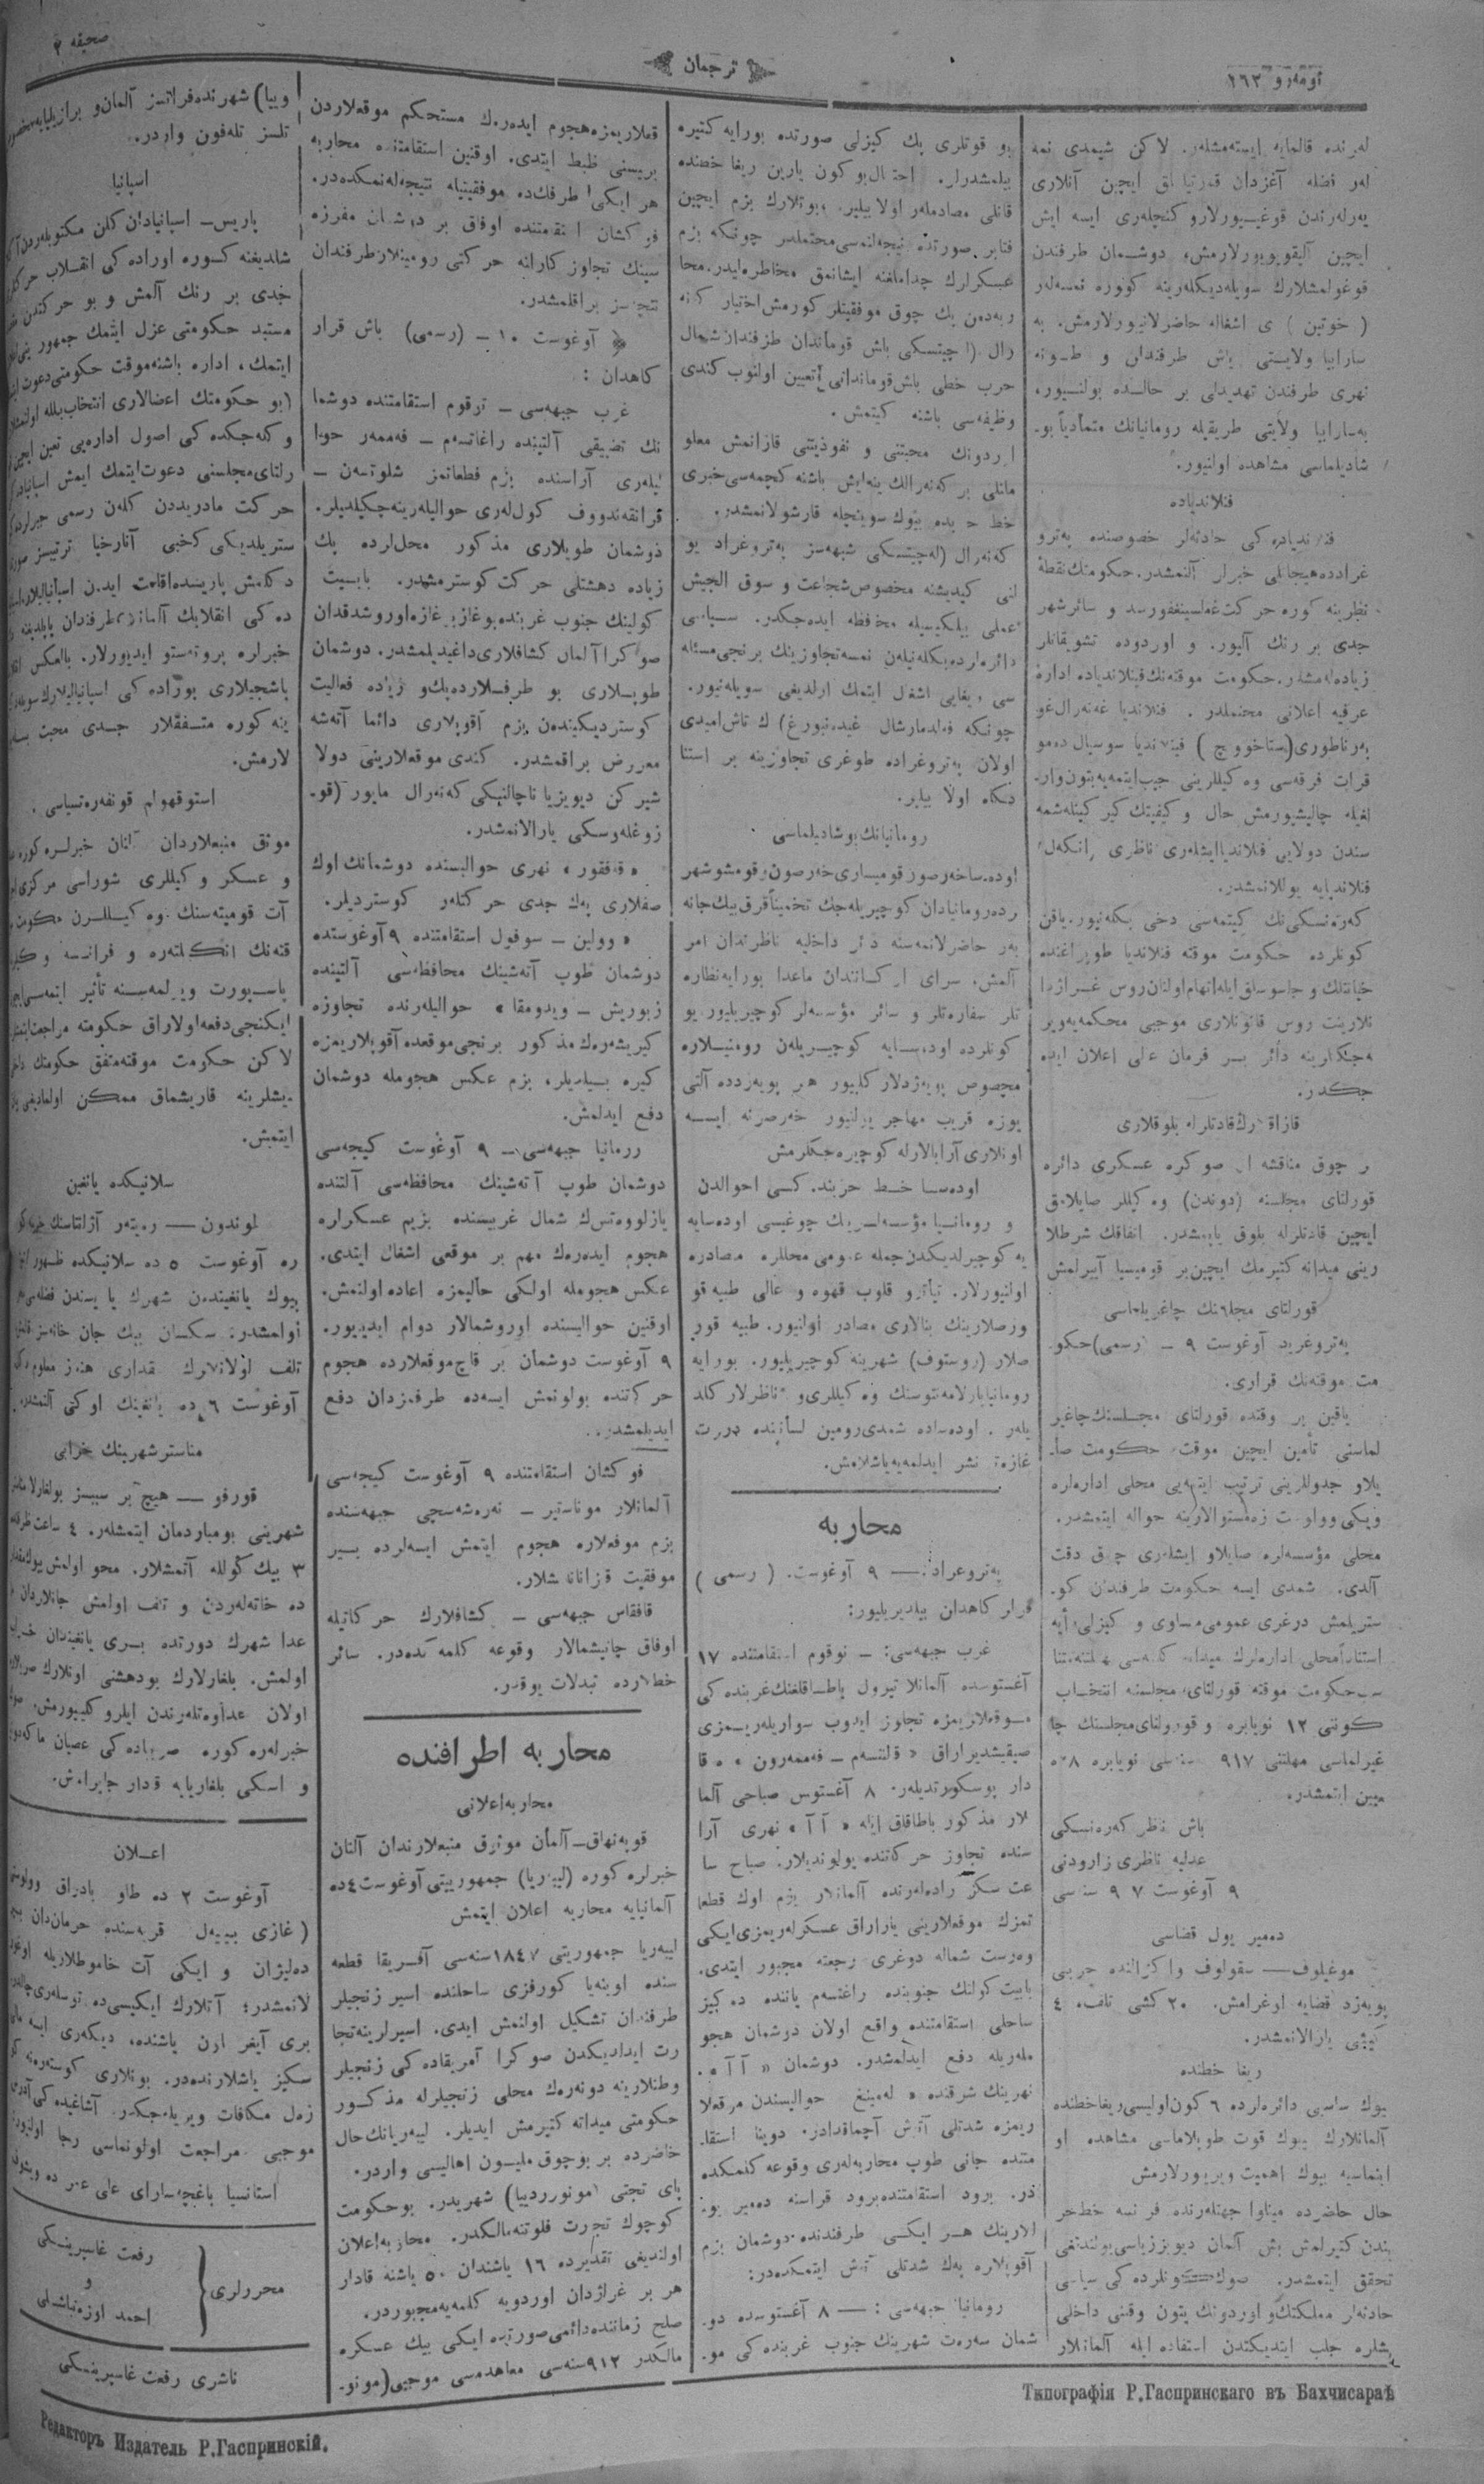 نومه‌رو ١٦٣
ترجمان
صحیفه ٢
لەرنده قالمایه ایسته‌مشلەر. لا کن شیمدی نمه
یەرلەرندن قوغـیورلارو کنچلەری ایسه ایش
ایچین آلیقویویورلارمش، دوشـمان طرفندن
قوغولمشلارك سویله‌دیکلەرینه کوره نمسه‌لەر
( خوتین ) ی اشغاله حاضرلانیورلارمش. به
سارابیا ولایـتی باش طرفندان و طـونه
نهری طرفندن تهدیدلی بر حالـده بولنـیور،
به‌سارابیا ولایتی طریقیله رومانیانك متمادیاً بو-
شادیلماسی مشاهده اولنیور.
فنلاندیاده
غرادده هیجانلی خبرلر آلنمشدر. حکومتك نقطهٔ
جدی بر رنك آلیور. و اوردوده تشویقاتلر
زیاده‌لەمشدر. حکومت موقته‌نك فنلاندیاده ادارهٔ
عرفیه اعلانی محتملدر . فنلاندیا غەنەرال‌غو
بەرناطوری (ستاخوویچ ) فینلاندیا سوسیال دەمو
قرات فرقەسی وه کیللرینی جیب ایتمه‌یه بتون وار-
لغیله چالیشیورمش حال و کیفیتك کیر کینلەشمه
سندن دولایی فنلاندیا ایشلەری ناظری
فنلاندیایه یوللانمشدر.
کەرەنسکی‌نك کیتمه‌سی دخی بکلەنیور. یاقن
کونلرده حکومت موقته فنلاندیا طوپراغنده
خیانتلك و جاسوسلق ایله اتهام اولنان روس غـراژدا
نلارینك روس قانونلاری موجبی محکمه‌یه ویر
یەجکلرینه دأئر بـر فرمان عالی اعلان ایده
جکدر.
ر چوق مناقشه لر صو کره عسکری دائره
قورلتای مجلسنه (دوندن) وه کیللر صایلامق
ایچین قادتلرله بلوق یاپمشدر. اتفاقك شرطلا
رینی میدانه کتیرمك ایچین بر قومیسیا آییرلمش
قورلتای مجلسنك چاغریلماسی
پەتروغراد آوغوست ٩ – (رسمی) حکو-
مت موقته‌نك قراری.
یاقین بر وقتده قورلتای مجـلسنك چاغیر
لماسنی تأمین ایچین موقت حکومت صا-
یلاو جدوللرینی ترتیب ایتمەیی محلی اداره‌لره
محلی مؤسسه‌لره صایلاو ایشلەری چوق دقت
آلدی. شمدی ایسه حکومت طرفندان کو-
ستریلمش درغری عمومی مساوی و کیزلی
کونی ١٢ نویابره و قورولتای مجلسنك چا
غیرلماسی مهلتنی ٩١٧ سنەسی نویابره ٢٨ ه
تعیین ایتمشدر.
باش ناظر کەرەنسکی
عدلیه ناظری زارودنی
٩ آوغوست ٩١٧ سنەسی
دەمیر یول قضاسی
موغیلوف — سقولوف واکزالنده حربی
پویەزد قضایه اوغرامش. ٢٠ کشی تلف، ٤
کیشی یارالانمشدر.
ریغا خطنده
بیوك سیاسی دائره‌لرده ٦ کون اولیسی ریغا خطنده
آلمانلارك بیوك قوت طوپلاماسی مشاهده او
لینماسیه بیوك اهمیت ویریورلارمش
حال حاضرده میناوا جهتلەرنده فرانسه خط حر
بندن کتیرلمش بش آلمان دیویزیاسی بولندیغی
تحقق ایتمشدر. صوك کونلرده کی سیاسی
حادثه‌لر مملکتك و اوردونك بتون وقتنی داخلی
یشلره جلب ایتدیکندن استفاده ایله آلمانلار
بو قوتلری پك کیزلی صورتده بورایه کتیره
بیلمشدرلر. احتمال بو کون یارین ریغا خطنده
قانلی مصادمه‌لر اولا بیلیر. بونلارك بزم ایچین
فنا بر صورتده نتیجه‌لنمسی محتملدر چونکه بزم
عسکرلرك چدامالغنه ایشانمق مخاطره‌لیدر. محا
ربەدەن پك چوق موفقیتلر کورمش اختیار کەنە
رال (لەچیتسکی باش قوماندان طرفندان شمال
حرب خطی باش قوماندانی) تعیین اولنوب کندی
وظیفەسی باشنه کیتمش .
اردونك محبتنی و نفوذیتنی قازانمش معلو
ماتلی بر کەنەرالك ینه ایش باشنه کچمەسی خبری
خط حربده بیوك سوینچله قارشولانمشدر.
کەنەرال (لەچیتسکی شبهه‌سز پەتروغراد یو
لنی کیدیشنه مخصوص شجاعت و سوق الجیش
عملی بیلکیسیله محافظه ایده‌جکدر. سیاسی
دائره‌لرده بکلەنیلەن نمسه تجاوزینك برنجی مسئله
سی ریغایی اشغال ایتمك اولدیغی سویلەنیور.
چونکه فەلدمارشال غیدەنبورغ) ك تاش امیدی
اولان پەتروغراده طوغری تجاوزینه بر استنا
دکاه اولا بیلیر.
رومانیانك بوشادیلماسی
اوده‌سا خەرصون قومیساری خەرصون و قومشو شهر
لرده رومانیادان کوچیریله‌جك تخمیناً قرق بیك جانه
یەر حاضرلانمه‌سنه دائر داخلیه ناظرندان امر
آلمش، سرای ارکانندان ماعدا بورایه نظاره
تلر سفاره‌تلر و سائر مؤسسه‌لر کوچیریلیور بو
کونلرده اوده‌سایه کوچیریلەن رومنیلاره
مخصوص پویەزدلار کلیور هر پویەزدده آلتی
یوزه قریب مهاجر یرلنیور خەرصونه ایسه
اونلاری آرابالارله کوچیره‌جکلرمش
اوده‌سا خـط حربنده کـی احوالدن
و رومانیا مؤسسه‌لرینك چوغیسی اوده‌سایه
یه کوچیرلدیکدن جمله عمومی محللره مصادره
اولنیورلار. تیاترو قلوب قهوه و عالی طبیه قو
رصلارینك بنالاری مصادر اولنیور. طبیه قور
صلار (روستوف) شهرینه کوچیریلیور. بورایه
رومانیا پارلامەنتوسنك وه کیللری و ناظرلار کلد
یلەر . اوده‌ساده شمدی رومین لسانینده دورت
غازه‌تا نشر ایدلمه‌یه باشلامش.
محاربه
پەتروغراد.— ٩ آوغوست. ( رسمی )
قرار کاهدان بیلدیریلیور:
غرب جبهه‌سی: – توقوم استقامتنده ١٧
آغستوسده آلمانلا تیرول باطـاقلغنك غربنده کی
موقعلاریمزه تجاوز ایدوب سواریلەریـمزی
صیقیشدیراراق « قلنتسم – فەممەرون » ه قا
دار پوسکورتدیلەر. ٨ آغستوس صباحی آلما
نلار مذکور باطاقاق ایله « آ آ » نهری آرا
سنده تجاوز حرکاتنده بولوندیلار. صباح سا
عت سکز راده‌لەرنده آلمانلار بزم اوك قطعا
تمزك موقعلارینی یاراراق عسکرلەریمزی ایکی
وەرست شماله دوغری رجعته مجبور ایتدی.
بابیت کولنك جنوبنده راغنسەم یاننده دەکیز
ساحلی استقامتنده واقع اولان دوشمان هجو
ملەریله دفع ایدلمشدر. دوشمان « آ آ » .
نهرینك شرقنده « لەمینغ حوالیسندن موقعلا
ریمزه شدتلی آتش آچماقدادر. دوینا استقا-
متنده جانی طوپ محاربه‌لەری وقوعه کلمکده
در. برود استقامتنده برود قراسنه دەمیر یو-
للارینك هـر ایکـی طرفندنده دوشمان بزم
آقوپلاره پەك شدتلی آتش ایتمکدەدر:
رومانیا جبهه‌سی: — ٨ آغستوسده دو-
شمان سەرەت شهرینك جنوب غربنده کی مو-
قعلاریمزه هجوم ایدەرەك مستحکم موقعلاردن
بریسنی ظبط ایتدی. اوقنین استقامتنده محاربه
هر ایکی طرفك‌ده موفقیتیله نتیجه‌لەنمکدەدر.
فوکشان استقامتنده اوفاق بر دوشمان مفرزه
سینك تجاوز کارانه حرکتی رومینلار طرفندان
نتیجه‌سز براقلمشدر.
آوغوست ١٠ – (رسمی) باش قرار
کاهدان :
غرب جبهه‌سی – توقوم استقامتنده دوشما
نك تضییقی آلتینده راغاتسەم – فەممەر حوا
لیلەری آراسنده بزم قطعاتمز شلوتسەن –
قرانقەندووف کول‌لەری حوالیلەرینه چکیلدیلر.
دوشمان طوپلاری مذکور محل‌لرده پك
زیاده دهشتلی حرکت کوسترمشدر. بابـیت
کولینك جنوب غربنده بوغازبو غازه اوروشدقدان
صوکرا آلمان کشافلاری داغیدیلمشدر. دوشمان
طوپـلاری بو طرفـلارده پك و زیاده فعالیت
کوستردیکیندەن بزم آقوپلاری دائما آتەشه
معروض براقمشدر. کندی موقعلارینی دولا
شیرکن دیویزیا ناچالنیکی کەنەرال مایور (قو-
زوغلەوسکی یارالانمشدر.
صفلاری پەك جدی حرکتلەر کوستردیلر.
« وولین – سوقول استقامتنده ٩ آوغوستده
دوشمان طوپ آتەشینك محافظەسی آلتینده
زبوریش – ویدومقا » حوالیلەرنده تجاوزه
کیریشەرەك مذکور برنجی موقعده آقوپلاریمزه
کیره بـیلدیلر، بزم عکس هجومله دوشمان
دفع ایدلمش.
رومانیا جبهه‌سی – ٩ آوغوست کیجەسی
دوشمان طوپ آتەشینك محافظەسی آلتنده
یازلووەتس‌ك شمال غربیسنده بزیم عسکرلره
هجوم ایدەرەك مهم بر موقعی اشغال ایتدی.
عکس هجومله اولکی حالیمزه اعاده اولنمش.
اوقنین حوالیسنده اوروشمالار دوام ایدییور.
٩ آوغوست دوشمان بر قاچ موقعلارده هجوم
حرکتنده بولونمش ایسه‌ده طرفمزدان دفع
ایدیلمشدر.
فوکشان استقامتنده ٩ آوغوست کیجەسی
آلمانلار موناستیر – نەرەشەسچی جبهه‌سنده
بزم موقعلاره هجوم ایتمش ایسه‌لرده بـیر
موفقیت قزانا نمشلار.
قافقاس جبهه‌سی – کشافلارك حرکاتیله
اوفاق چاتیشمالار وقوعه کلمەکدەدر. سائر
خطلارده تبدلات یوقدر.
محاربه اطرافنده
محاربه اعلانی
قوپەنهاق – آلمان موثوق منبعلارندان آلنان
خبرلره کوره (لیبریا) جمهوریتی آوغوست ٤ ده
آلمانیایه محاربه اعلان ایتمش
لیبەریا جمهوریتی ١٨٤٧ سنەسی آفـریقا قطعه
سنده اوینەیا کورفزی ساحلنده اسیر زنجیلر
طرفندان تشکیل اولنمش ایدی. اسیرلرینه تجا
رت ایدلدیکدن صوکرا آمریقاده کی زنجیلر
وطنلارینه دونەرەك محلی زنجیلرله مذکـور
حکومتی میدانه کتیرمش ایدیلر. لیبەریانك حال
حاضرده بر بوچوق ملیـون اهالیسی واردر.
پای تختی (مونورودییا) شهریدر. بو حکومت
کوچوك تجارت فلوتنه مالکدر. محاربه اعلان
اولندیغی تقدیرده ١٦ یاشندان ٥٠ یاشنه قادار
هر بر غراژدان اوردویه کلمەیه مجبوردر.
صلح زماننده دائمی صورتده ایکی بیك عسکره
مالکدر ٩١٢ سنەسی معاهده‌سی موجبی (مونو-
ویبا) شهرنده فرانسز آلمان و برازیلیایه مخصوص
تلسز تلەفون واردر.
اسپانیا
پاریس – اسپانیادان کلن مکتوبلەردن آ
شلدیغنه کـوره اوراده کی انقـلاب حرکتی
جدی بر رنك آلمش و بو حرکتدن
مستبد حکومتی عزل ایتمك جمهوریتی
ایتمك، اداره باشنه موقت حکومتی دعوت
(بو حکومتك اعضالاری انتخاب یلله اولنمشلار
و کلەجکده کی اصول اداره‌یی تعین ایچین
رلتای مجلسنی دعوت ایتمك ایمش اسپانیاده
حرکت مادریددن کلەن رسمی خبرلرده
ستریلدیکی کبی آنارخیا ترتیبسز صورت
ده کلمش پاریسده اقامت ایدن اسپانیالیلار
ده کی انقلابك آلمانلار طرفندان یاپلدیغنه
خبرلره پروتەستو ایدیورلار. بالعکس
باشچیلاری بوراده کی اسپانیالیلارك سویلە
ینه کوره متـفقلار جـدی محبت بسله
لارمش.
استوقهولم قونفەرەنسیاسی .
موثق منبعلاردان آلنان خبرلـره کوره
و عسکر وکیللری شوراسی مرکزی
قته‌نك انکلتەره و فرانسه
پاسپورت ویرلمەسـنه تأثیر ایتمه‌سی
ایکنجی دفعه اولاراق حکومته مراجعت ایتمش
لاکن حکومت موقته متفق حکومتك داخلی
ایشلرینه قاریشماق ممکن اولمادیغی
ایتمش.
سلانیکده یانغین
لوندون — رەیتەر آژانتاسنك خبرینه کو
ره آوغوست ٥ ده سلانیکده ظـهور
بیوك یانغیندەن شهرك یاریسندن فضلەسی
اولمشدر: سکسان بیك جان خانەسز
تلف اولانلارك مقداری هنوز معلوم
آوغوست ٦ ده یانغینك اوکی آلنمشدر.
مناستر شهرینك خرابی
قورفو — هیچ بر سببسز بولغارلار
شهرینی بومباردمان ایتمشلەر. ٤ ساعت ظرفنده
٣ بیك کولله آتمشلار. محو اولمش
ده خانه‌لەردن و تلف اولمش جانلاردان
عدا شهرك دورتده بـری یانغیندان خـراب
اولمش. بلغارلارك بو دهشتی اونلارك
اولان عداوەتلەرندن ایلرو کلییورمش.
خبرلەره کوره صربیاده کی عصیان
و اسکی بلغاریایه قدار جایرامش.
اعـلان
آوغوست ٢ ده طاو بادراق وولوستی
( غازی بییەل قریەسنده حرمان‌دان
دەلیژان و ایکی آت خاموطلاریله
لانمشدر؛ آتلارك ایکیسی‌ده
بری آیغر اون یاشنده، دیکەری ایسه
سکیز یاشلارندەدر. بونلاری کوستەرەنه
زەل مکافات ویریله‌جکدر. آشاغیده کی
موجبی مراجعت اولونماسی رجا اولنور.
استانسیا باغچه‌سارای
محررلری
رفعت غاسپرینسکی
و
احمد اوزەنباشلی
ناشری رفعت غاسپرینسکی
Типографія Р.Гаспринскаго въ Бахчисараѣ
Редакторъ Издатель Р.Гаспринскій.